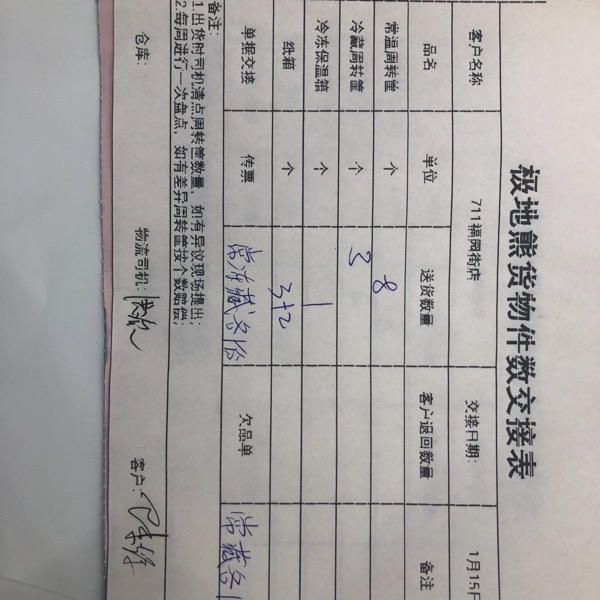 极地熊货物件数交接表
客户名称 711福园街店 交接日期: 1月15日
品名 单位 送货数量 客户退回数量 备注
常温周转筐 个 8
冷藏周转筐 个 3
冷冻保温箱 个 1
纸箱 个 3+2
单据交接 传票 常冻藏各1份 欠品单 常藏各1
备注:
1.出货时司机清点周转筐数量，如有异议现场提出;
2.每周进行一次盘点，如有差异周转筐按个数赔偿;
仓库: 物流司机: 客户: